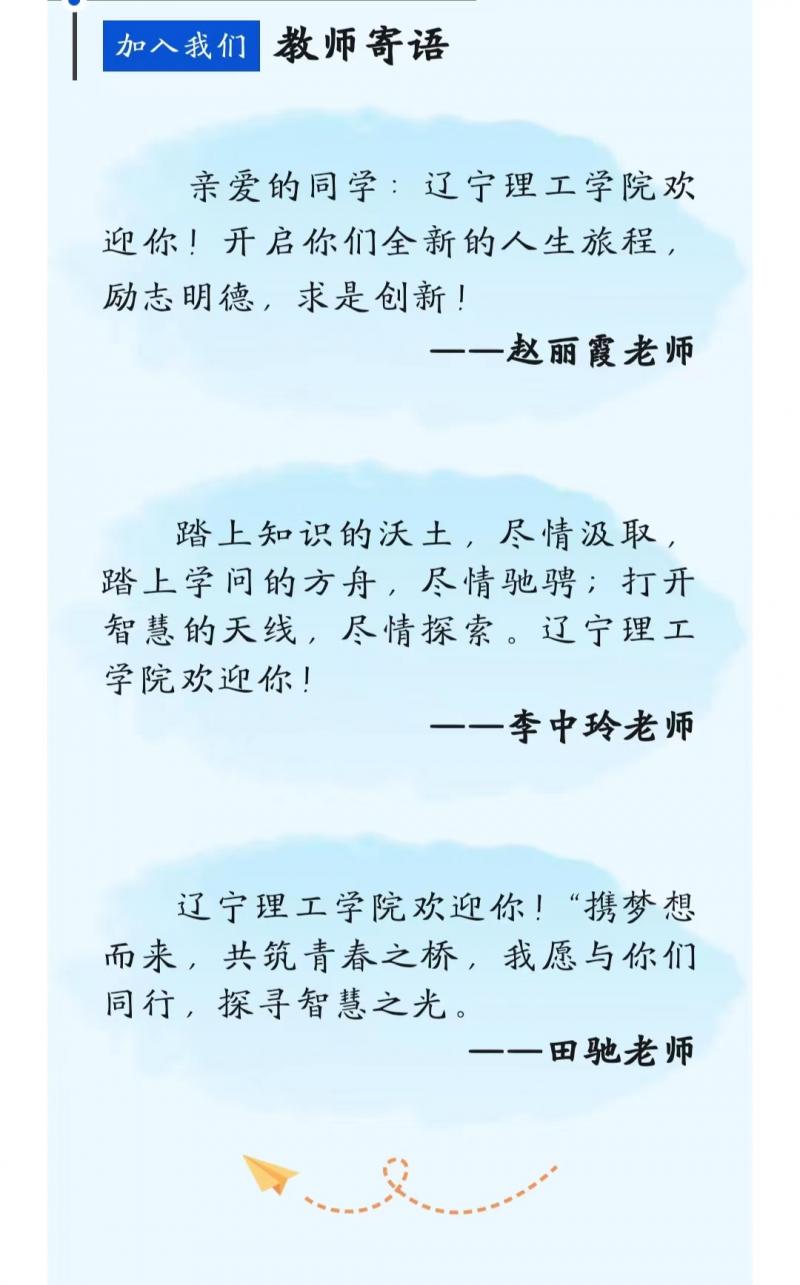 加入我们 教师寄语
亲爱的同学：辽宁理工学院欢
迎你！开启你们全新的人生旅程，
励志明德，求是创新！
——赵丽霞老师
踏上知识的沃土，尽情汲取，
踏上学问的方舟，尽情驰骋；打开
智慧的天线，尽情探索。辽宁理工
学院欢迎你！
——李中玲老师
辽宁理工学院欢迎你！“携梦想
而来，共筑青春之桥，我愿与你们
同行，探寻智慧之光。
——田驰老师